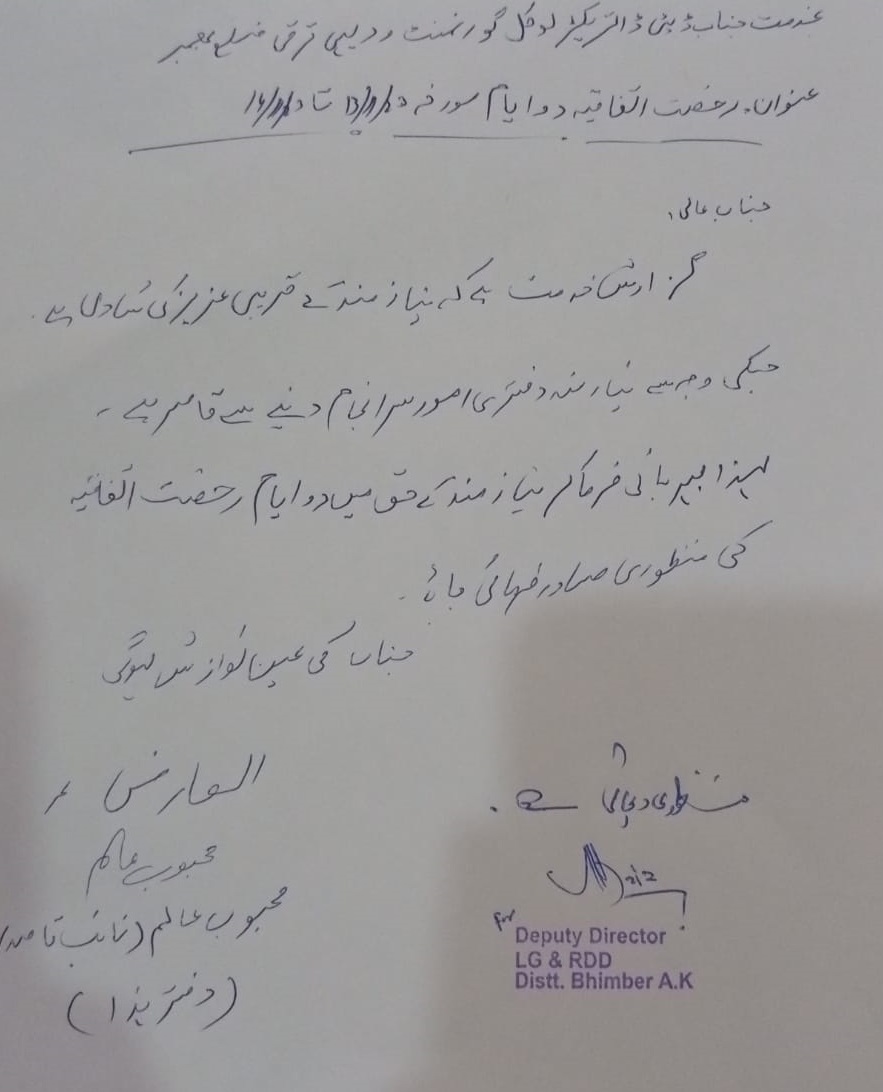 بخدمت جناب ڈپٹی ڈائریکٹر لوکل گورنمنٹ و دیہی ترقی ضلع بھمبر
عنوان۔ رخصت اتفاقیہ دو ایام مورخہ تا
جناب عالی،
گزارش خدمت ہے کہ نیاز مند کے قریبی عزیز کی شادی ہے۔
جسکی وجہ سے نیاز مند دفتری امور سرانجام دینے سے قاصر ہے۔
لہذا مہربانی فرما کر نیاز مند کے حق میں دو ایام رخصت اتفاقیہ
کی منظوری صادر فرمائی جائے۔
جناب کی عین نوازش ہوگی
العارض
محبوب عالم
محبوب عالم (نائب قاصد)
(دفتر ہذا)
منظوری دی جاتی ہے۔
for
Deputy Director
LG & RDD
Distt. Bhimber A.K